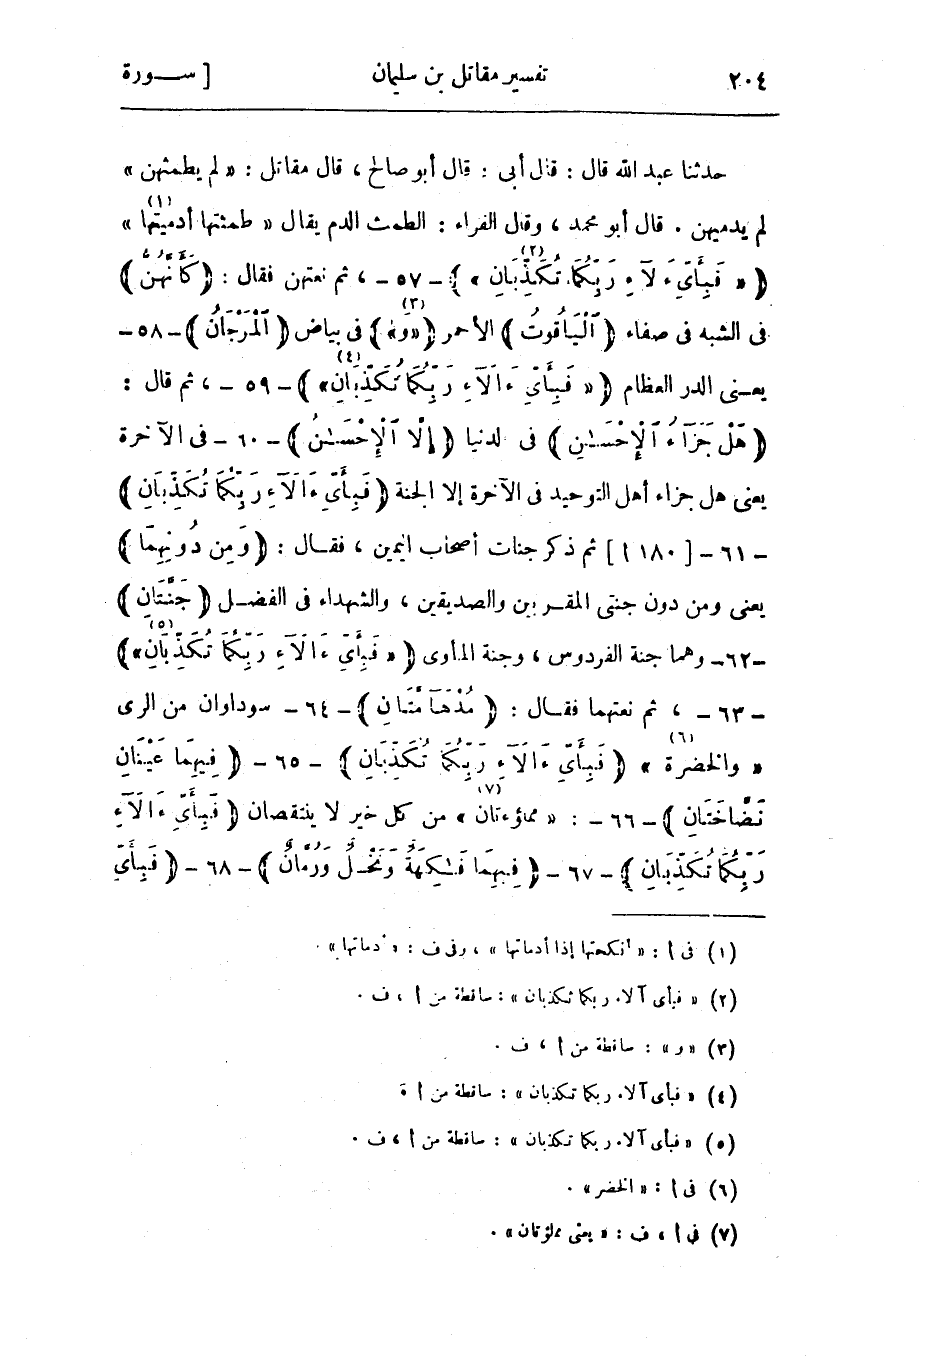 ٢٠٤ تفسير مقاتل بن سليمان [ ســـورة
حدثنا عبد الله قال : قال أبى : قال أبو صالح ، قال مقاتل : « لم يطمثهن »
لم يدميهن . قال أبو محمد ، وقال الفراء : الطمث الدم يقال « طمثتها أدميتها » (١)
﴿ « فَبِأَىِّ ءَالَآءِ رَبِّكُمَا تُكَذِّبَانِ » (٢) ﴾ - ٥٧ - ، ثم نعتهن فقال : ﴿ كَأَنَّهُنَّ ﴾
فى الشبه فى صفاء ﴿ ٱلْيَاقُوتُ ﴾ الأحمر ﴿ « وَ » (٣) ﴾ فى بياض ﴿ ٱلْمَرْجَانُ ﴾ - ٥٨ -
يعـنى الدر العظام ﴿ « فَبِأَىِّ ءَالَآءِ رَبِّكُمَا تُكَذِّبَانِ » (٤) ﴾ - ٥٩ - ، ثم قال :
﴿ هَلْ جَزَآءُ ٱلْإِحْسَـٰنِ ﴾ فى لدنيا ﴿ إِلَّا ٱلْإِحْسَـٰنُ ﴾ - ٦٠ - فى الآخرة
يعنى هل جزاء أهل التوحيد فى الآخرة إلا الجنة ﴿ فَبِأَىِّ ءَالَآءِ رَبِّكُمَا تُكَذِّبَانِ ﴾
- ٦١ - [ ١٨٠ أ ] ثم ذكر جنات أصحاب اليمين ، فقـال : ﴿ وَمِن دُونِهِمَا ﴾
يعنى ومن دون جنتى المقـربين والصديقين ، والشهداء فى الفضـل ﴿ جَنَّتَانِ ﴾
- ٦٢ - وهما جنة الفردوس ، وجنة المأوى ﴿ « فَبِأَىِّ ءَالَآءِ رَبِّكُمَا تُكَذِّبَانِ » (٥) ﴾
- ٦٣ - ، ثم نعتهما فقـال : ﴿ مُدْهَآمَّتَانِ ﴾ - ٦٤ - سوداوان من الرى
« والخضرة » (٦) ﴿ فَبِأَىِّ ءَالَآءِ رَبِّكُمَا تُكَذِّبَانِ ﴾ - ٦٥ - ﴿ فِيهِمَا عَيْنَانِ
نَضَّاخَتَانِ ﴾ - ٦٦ - : « مملؤتان » (٧) من كل خير لا ينتقصان ﴿ فَبِأَىِّ ءَالَآءِ
رَبِّكُمَا تُكَذِّبَانِ ﴾ - ٦٧ - ﴿ فِيهِمَا فَـٰكِهَةٌ وَنَخْـلٌ وَرُمَّانٌ ﴾ - ٦٨ - ﴿ فَبِأَىِّ
(١) فى أ : « أنكحتها إذا أدماتها » ، وفى ف : « أدماتها » .
(٢) « فبأى آلاء ربكما تكذبان » : ساقطة من أ ، ف .
(٣) « و » : ساقطة من أ ، ف .
(٤) « فبأى آلاء ربكما تكذبان » : ساقطة من أ
(٥) « فبأى آلاء ربكما تكذبان » : ساقطة من أ ، ف .
(٦) فى أ : « الخضر » .
(٧) فى أ ، ف : « يعنى مملؤتان » .